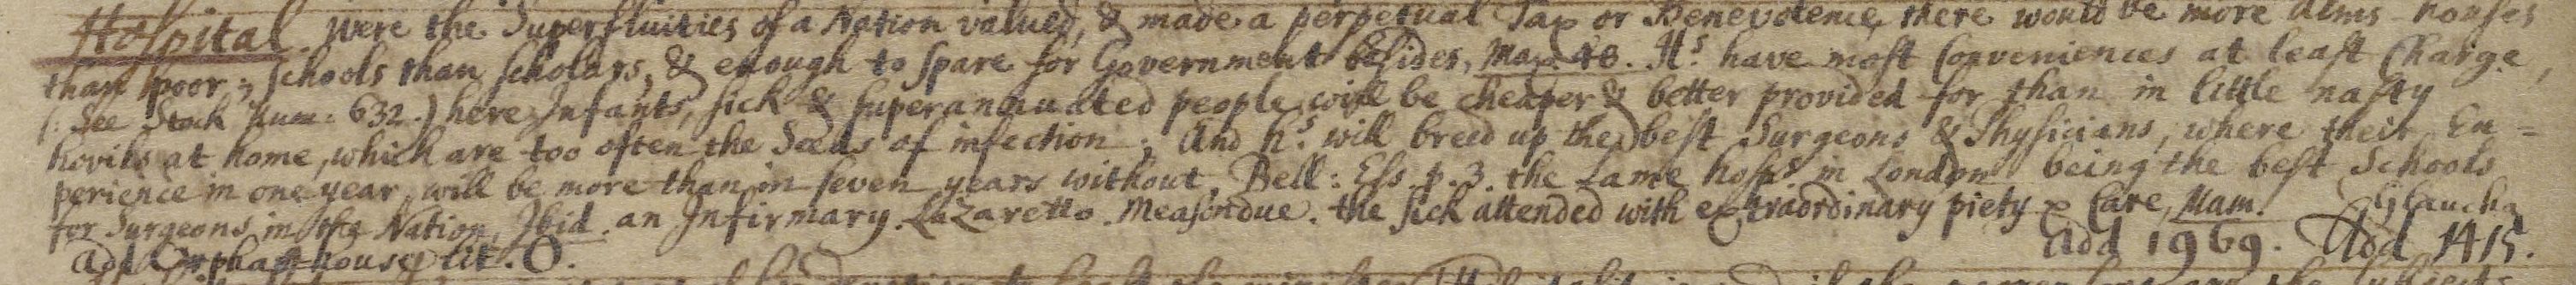 Hospital. Were the Superfluities of a Nation valued, & made a perpetual Tax or Benevolence, there would be more alms-houses
than poor; schools than scholars, & enough to spare for Government besides, Max 48. Hs. have most Conveniences at least Charge,
(: See Stock Num: 632.) here Infants, sick & superannuated people will be cheaper & better provided for than in little nasty
hovils at home, which are too often the Seeds of infection; And hs. will breed up the best Surgeons & Physicians, where their Ex=
perience in one year, will be more than in seven years without, Bell: Ess. p. 3. the Lame hospls in London being the best Schools
for Surgeons in the Nation, Ibid. an Infirmary. Lazaretto. Measondue. the sick attended with extraordinary piety & Care, Mam. Glaucha
add Orphan-house, lit. O. add 1969. Add 1415.